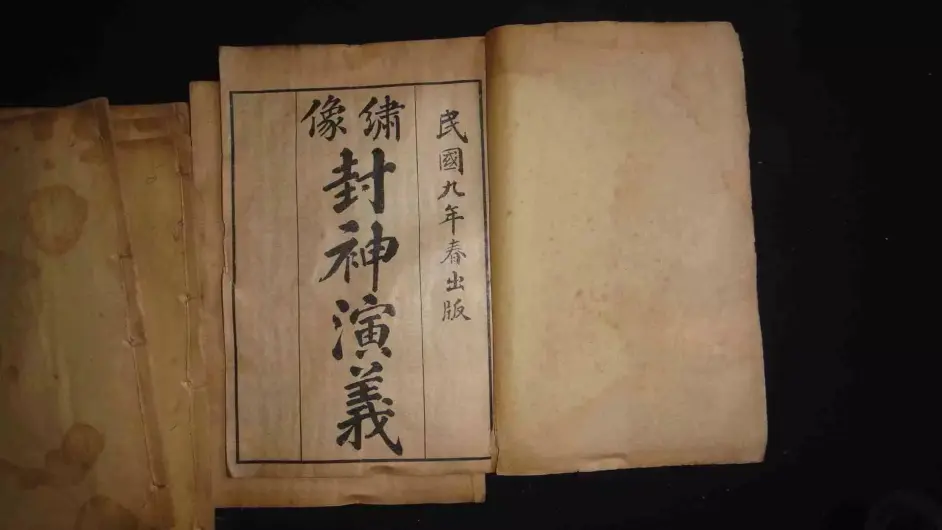 民國九年春出版
繡像
封神演義